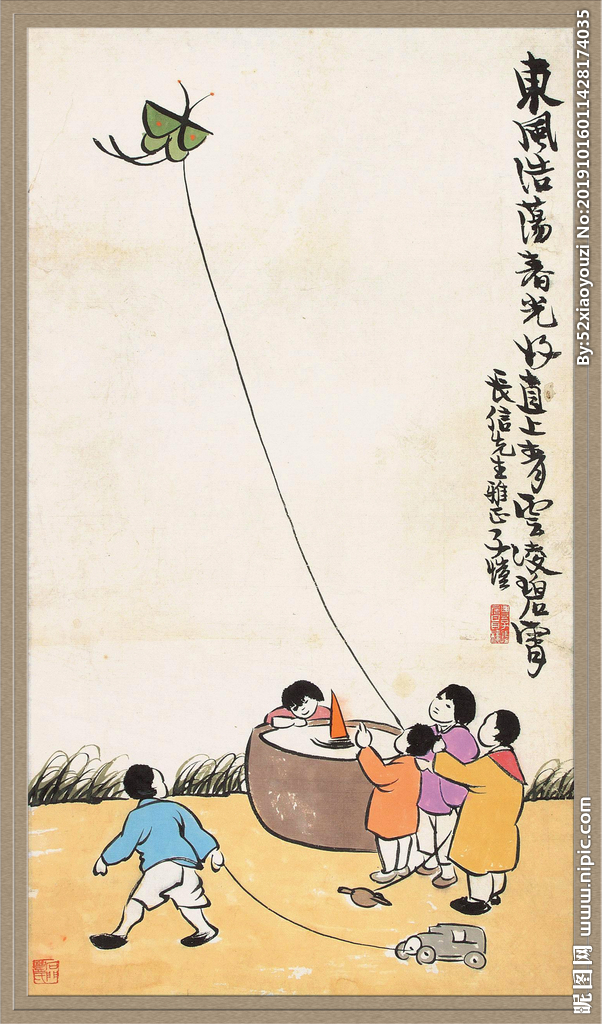 東風浩蕩春光好直上青雲淩碧霄
長信先生雅正子愷
By:52xiaoyouzi No:20191016011428174035
昵图网 www.nipic.com